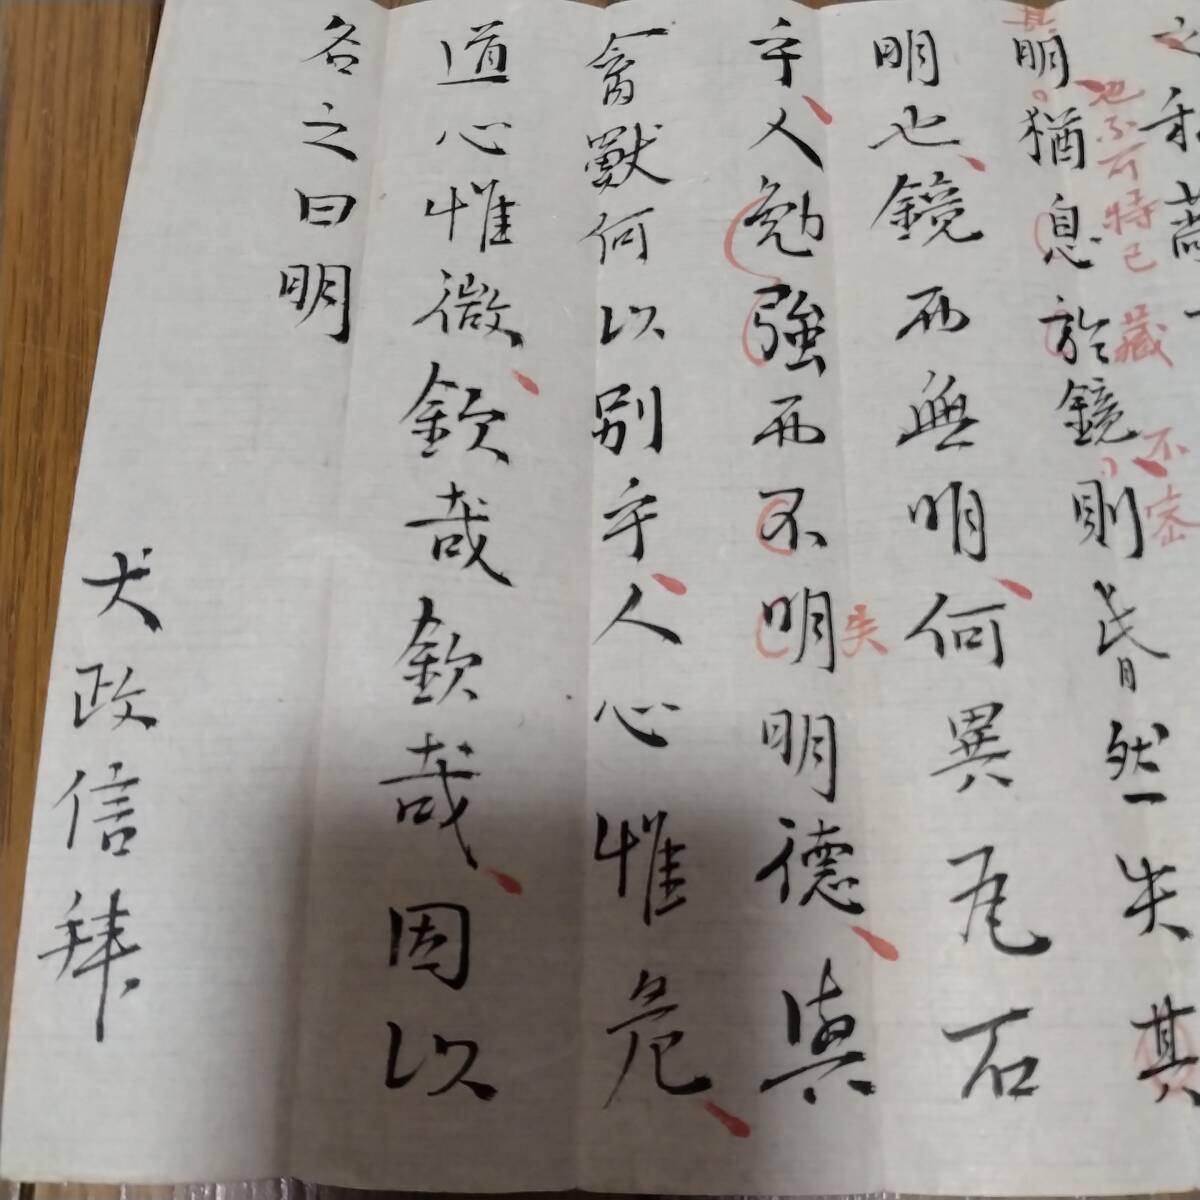 之利
其
明猶息於鏡則昏然失其
也不可恃已 藏 不密
明也鏡而無明何異瓦石
乎人勉強而不明明德與
失
禽獸何以別乎人心惟危
道心惟微欽哉欽哉因以
名之曰明
犬政信拜